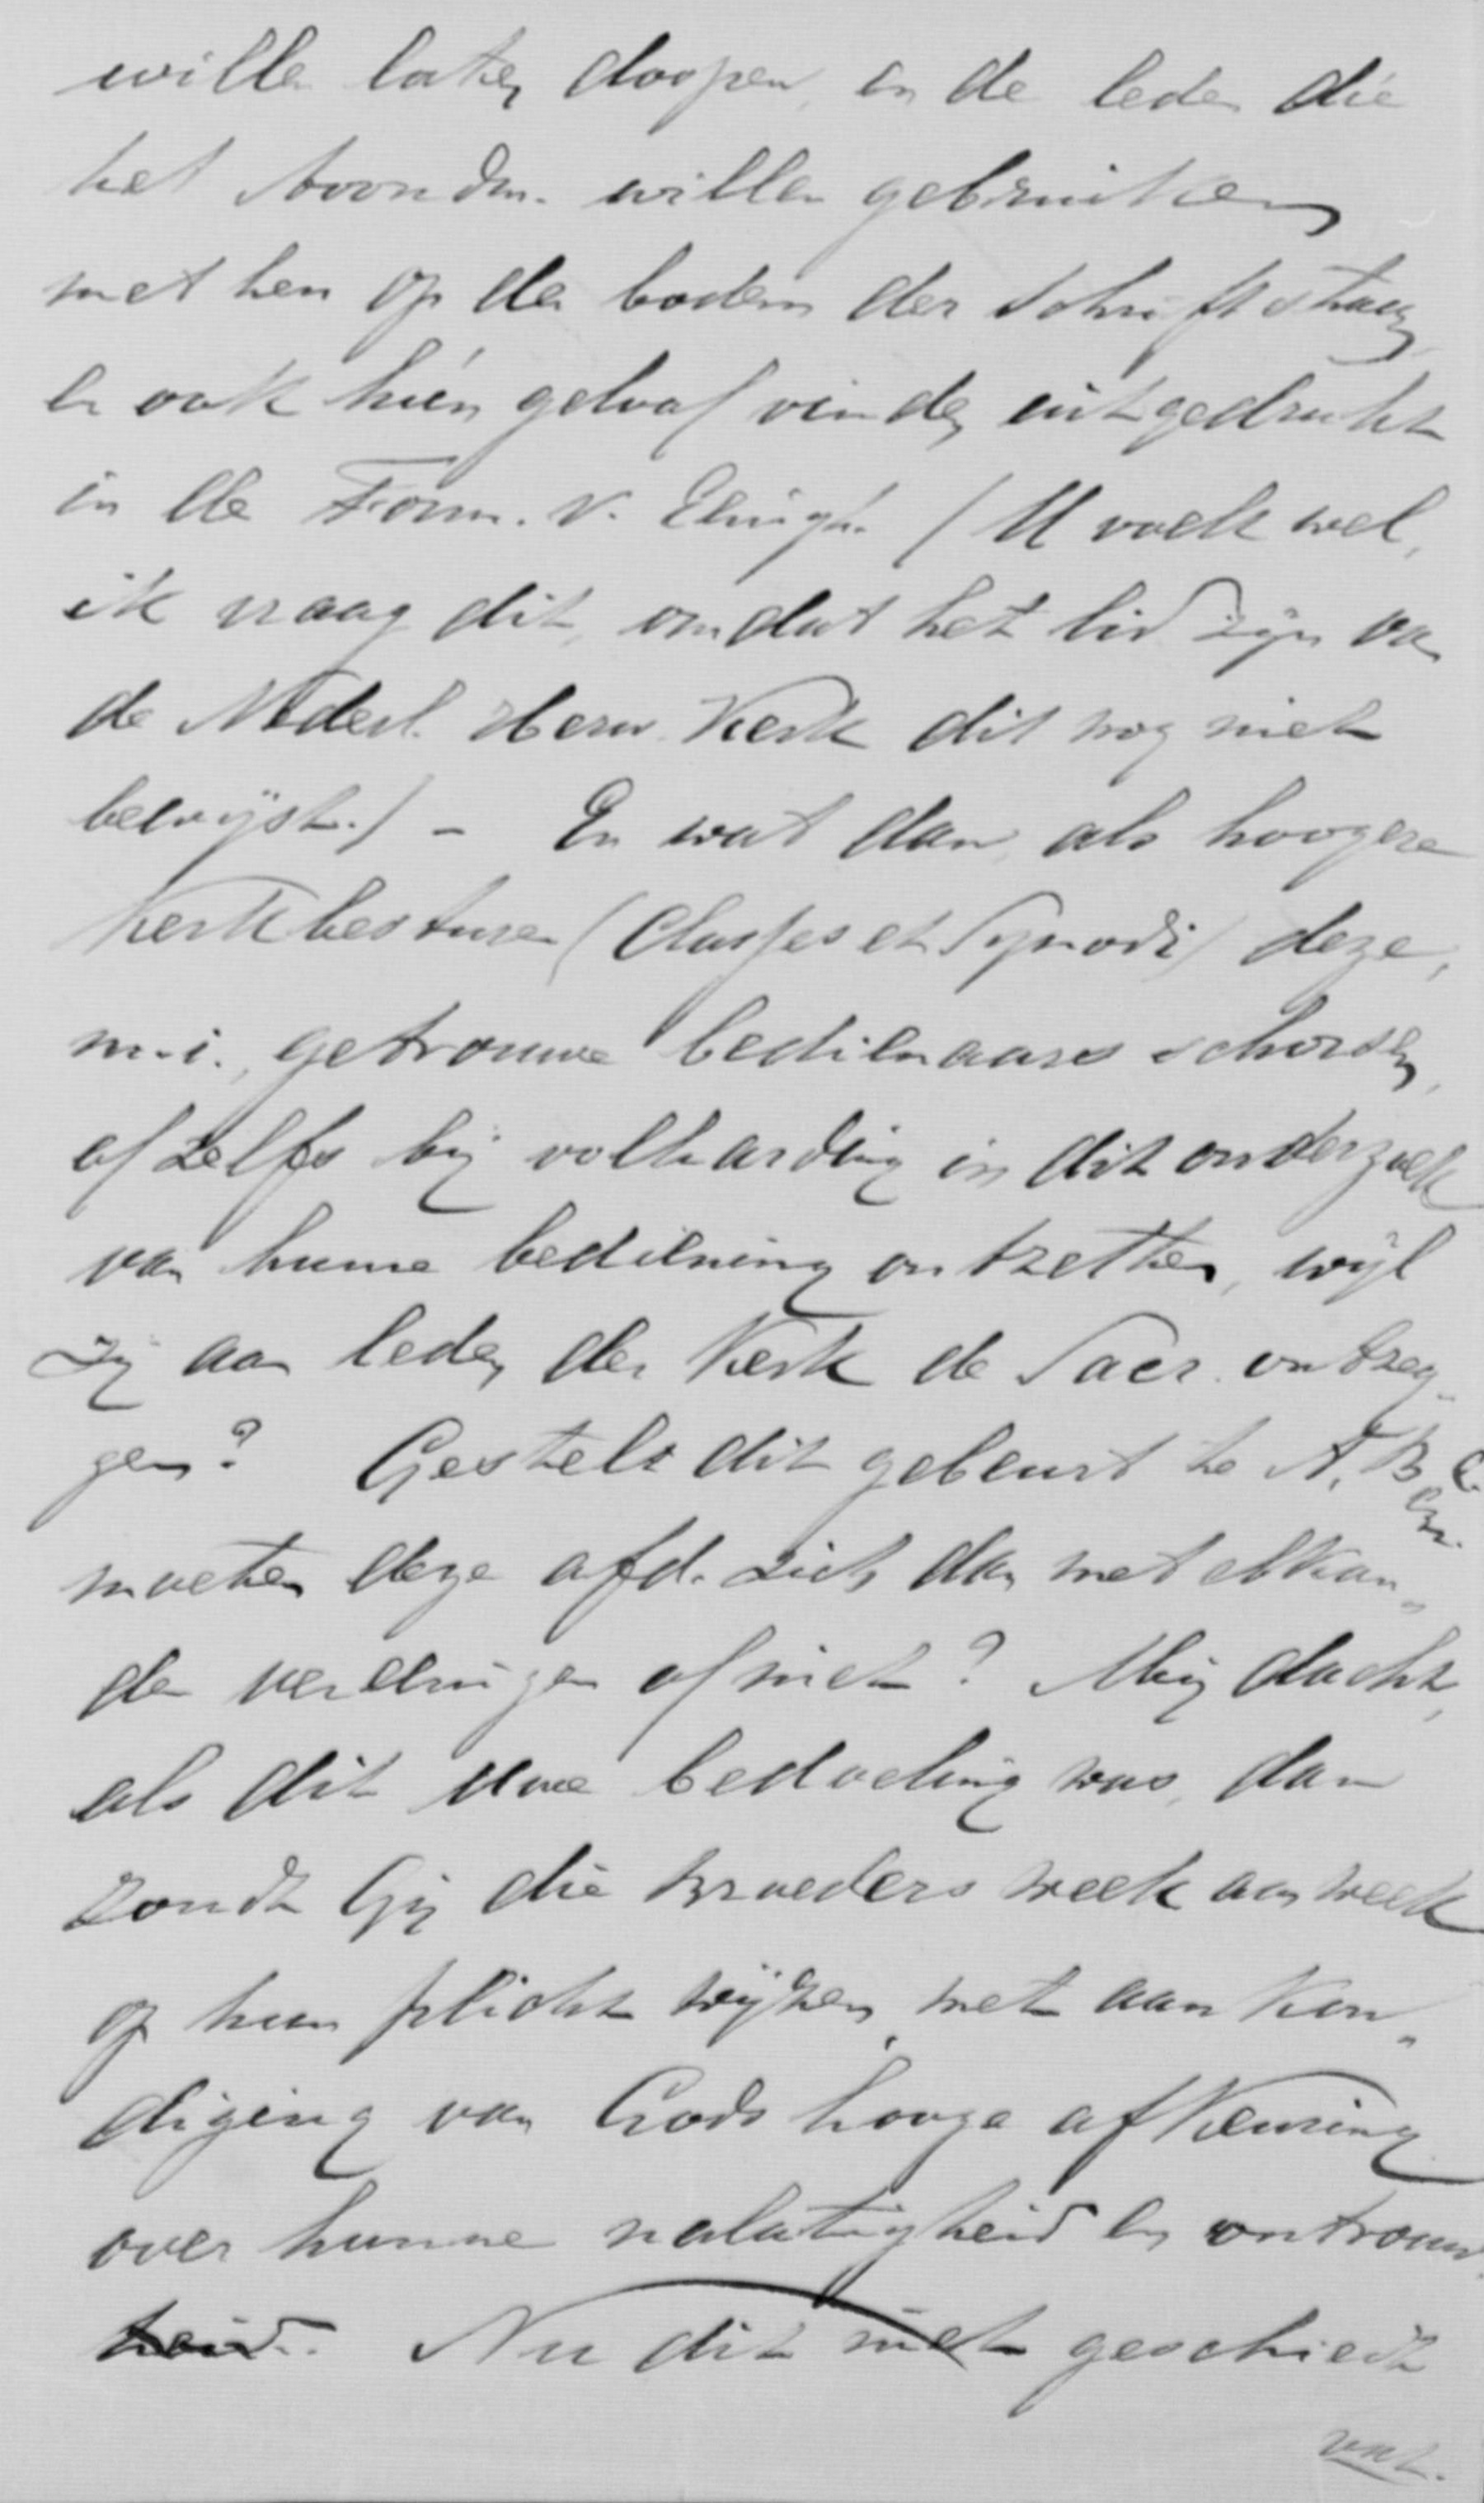 willen laten doopen, en de leden die
het Avondm. willen gebruiken
met hen op den bodem der Schrift staan,
en ook hún geloof vinden uitgedrukt
in de Form. v. Eenigh. (U voelt wel,
ik vraag dit, omdat het lid zijn van
de Nederl. Herv. Kerk dit nog niet
bewijst.) – En wat dan, als hoogere
Kerkbesturen (Classes et Synodi) deze,
m.i., getrouwe bedienaars schorsen,
of zelfs bij volharding in dit onderzoek
van hunne bediening ontzetten, wijl
zij aan leden der Kerk de Sacr. ontzeg-
gen? Gesteld dit gebeurt te A, B, C.
enz.
moeten deze afd. zich dan met elkan„
der vereenigen of niet? Mij dacht,
als dit Uwe bedoeling was, dan
zondt Gij die broeders week aan week
op hun plicht wijzen, met aankon„
diging van Gods hooge afkeuring
over hunne nalatigheid en ontrouw
heid. Nu dit niet geschiedt